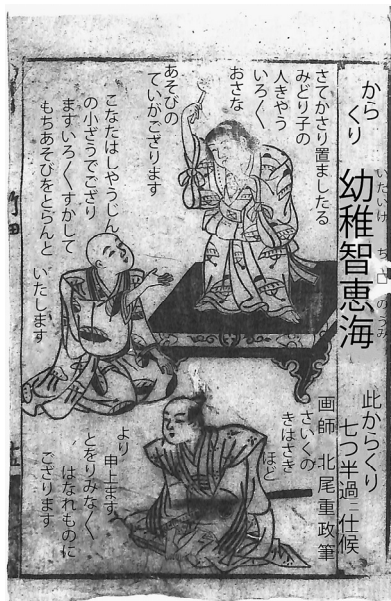 からくり
幼稚智恵海
いたいけ ち□のうみ
此からくり
七つ半過ニ仕候
画師 北尾重政筆
さてかさり置ましたる
みどり子の
人きやう
いろ〱
おさな
あそびの
ていがござります
こなたはしやうじん
の小ざうでござり
ますいろ〱すかして
もちあそびをとらんと
いたします
さいくの
きはさき
ほど
より
申上ます
とをりみな〱
はなれものに
ござります